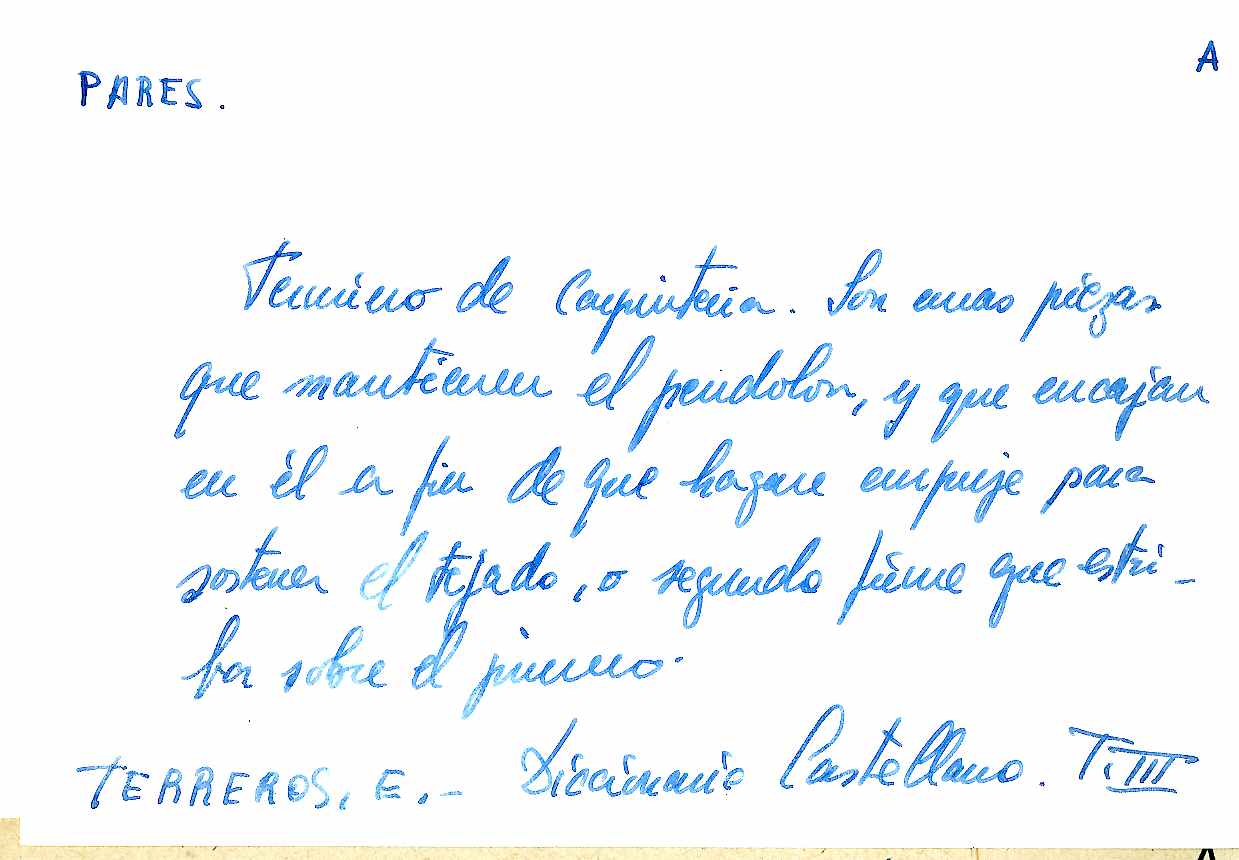 A
PARES.
Termino de Carpinteria. Son unas piezas
que mantienen el pendolon, y que encajan
en él a fin de que hagan empuje para
sostener el tejado, o segundo
que estri-
ban sobre el primero.
TERREROS, E.- Diccionario Castellano. T. III